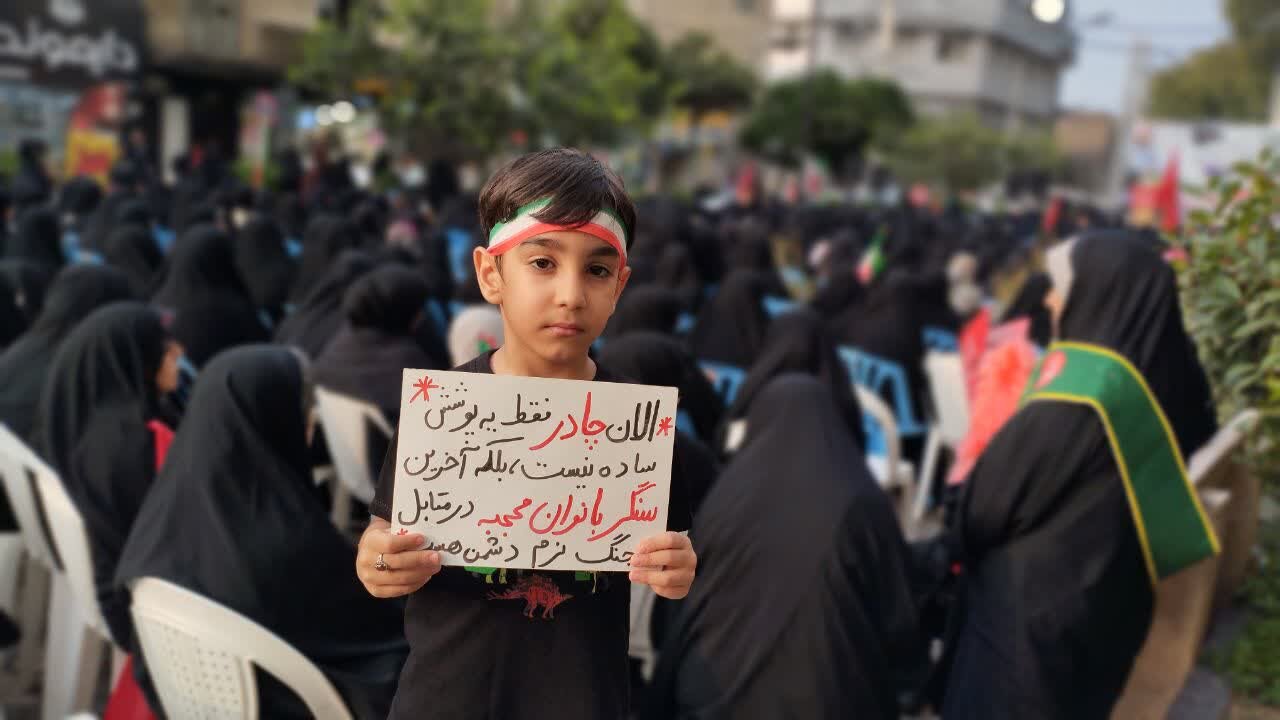 الان چادر فقط یه پوشش
ساده نیست، بلکه آخرین
سنگر بانوان محجبه در مقابل
جنگ نرم دشمن